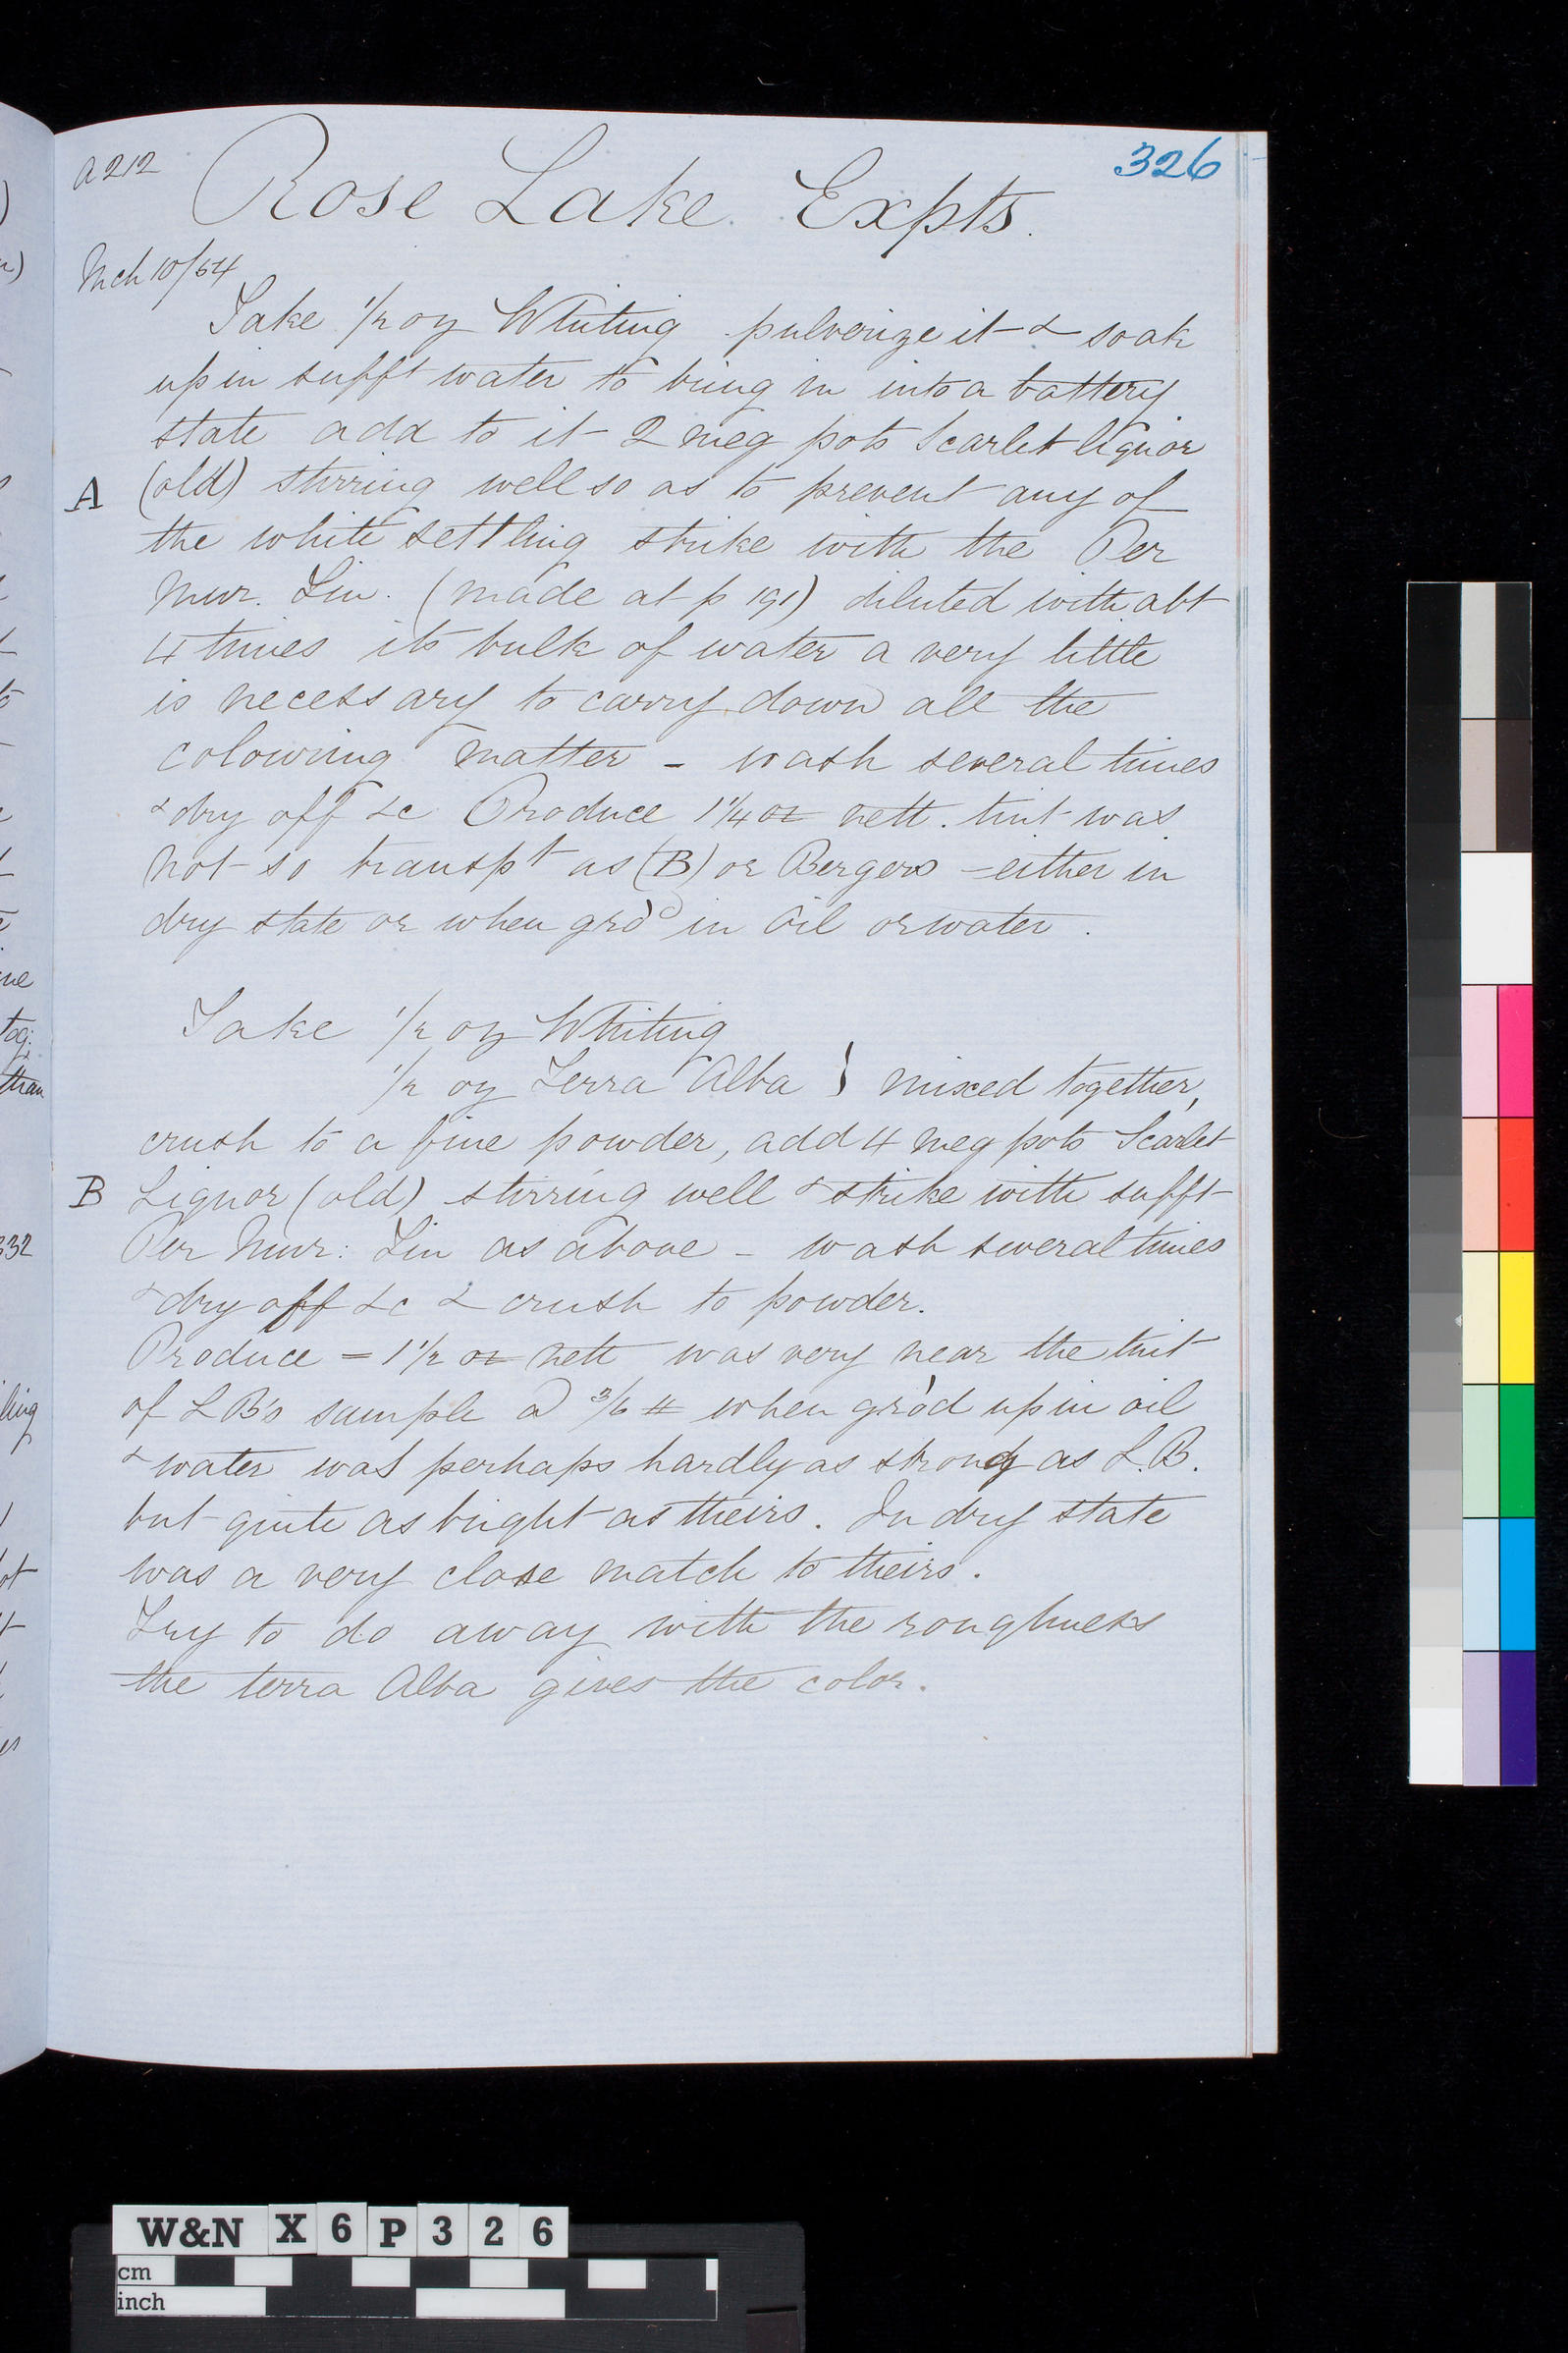 A212
326
Rose Lake. Expts.
Mch 10/64
Take 1/2 oz Whiting pulverize it & soak
up in sufft water to bring in into a battery
state add to it 2 meg pots Scarlet liquor
A (old) stirring well so as to prevent any of
the white settling strike with the Per
Mur. Tin. (made at p 191) diluted with abt
4 times its bulk of water a very little
is necessary to carry down all the
colouring matter - wash several times
& dry off &c Produce 1 1/4 oz nett. tint was
not so transpt as (B) or Bergers - either in
dry state or when grd in Oil or water.
Take 1/2 oz Whiting
1/2 oz Terra Alba } mixed together,
crush to a fine powder, add 4 meg pots Scarlet
B Liquor (old) stirring well & strike with sufft
Per Mur: Tin as above - wash several times
& dry off &c & crush to powder.
Produce = 1 1/2 oz nett was very near the tint
of LB's sample @ 3/6 # when gr'd up in oil
& water was perhaps hardly as strong as L.B.
but quite as bright as theirs. In dry state
was a very close match to theirs.
Try to do away with the roughness
the terra Alba gives the color.
ne
than
332
ling
W&N X 6 P 3 2 6
cm
inch